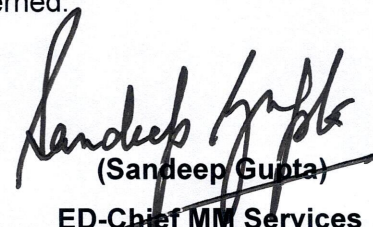 erned.
Sandeep Gupta
(Sandeep Gupta)
ED-Chief MM Services